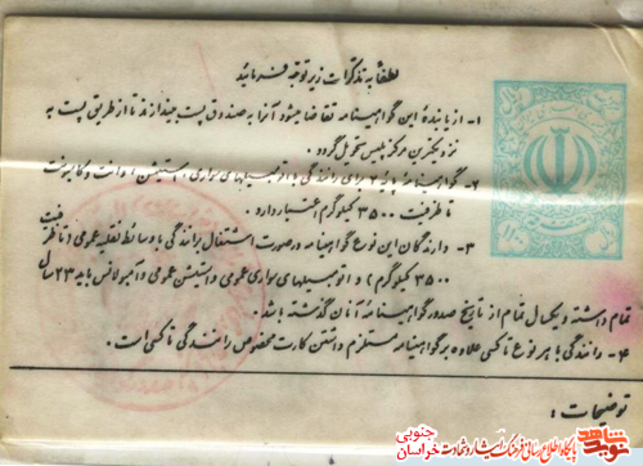 لطفا به تذکرات زیر توجه فرمائید
۱- از یابندهٔ این گواهینامه تقاضا میشود آنرا به صندوق پست بیندازند تا از طریق پست به
نزدیکترین مرکز پلیس تحویل گردد.
۲- گواهینامهٔ پایهٔ ۲ برای رانندگی با اتومبیلهای سواری، استیشن، وانت و کامیونت
تا ظرفیت ۳۵۰۰ کیلوگرم اعتبار دارد.
۳- دارندگان این نوع گواهینامه در صورت اشتغال برانندگی با وسائط نقلیه عمومی (تا ظرفیت
۳۵۰۰ کیلوگرم) و اتومبیلهای سواری عمومی و استیشن عمومی و آمبولانس باید ۲۳ سال
تمام داشته و یکسال تمام از تاریخ صدور گواهینامهٔ آنان گذشته باشد.
۴- رانندگی با هر نوع تاکسی علاوه بر گواهینامه مستلزم داشتن کارت مخصوص رانندگی تاکسی است.
توضیحات:
نوید شاهد
پایگاه اطلاع رسانی فرهنگ ایثار و شهادت
خراسان جنوبی